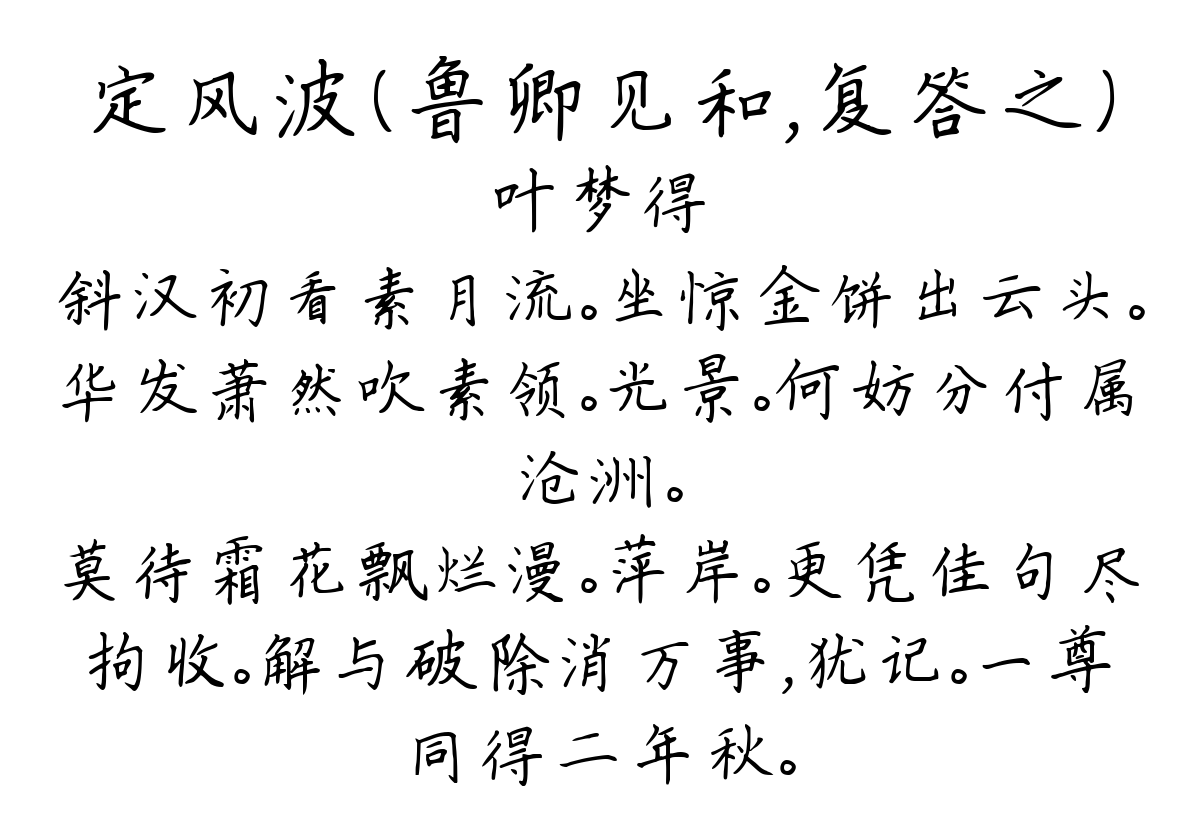 定风波(鲁卿见和,复答之)
叶梦得
斜汉初看素月流。坐惊金饼出云头。
华发萧然吹素领。光景。何妨分付属
沧洲。
莫待霜花飘烂漫。萍岸。更凭佳句尽
拘收。解与破除消万事,犹记。一尊
同得二年秋。